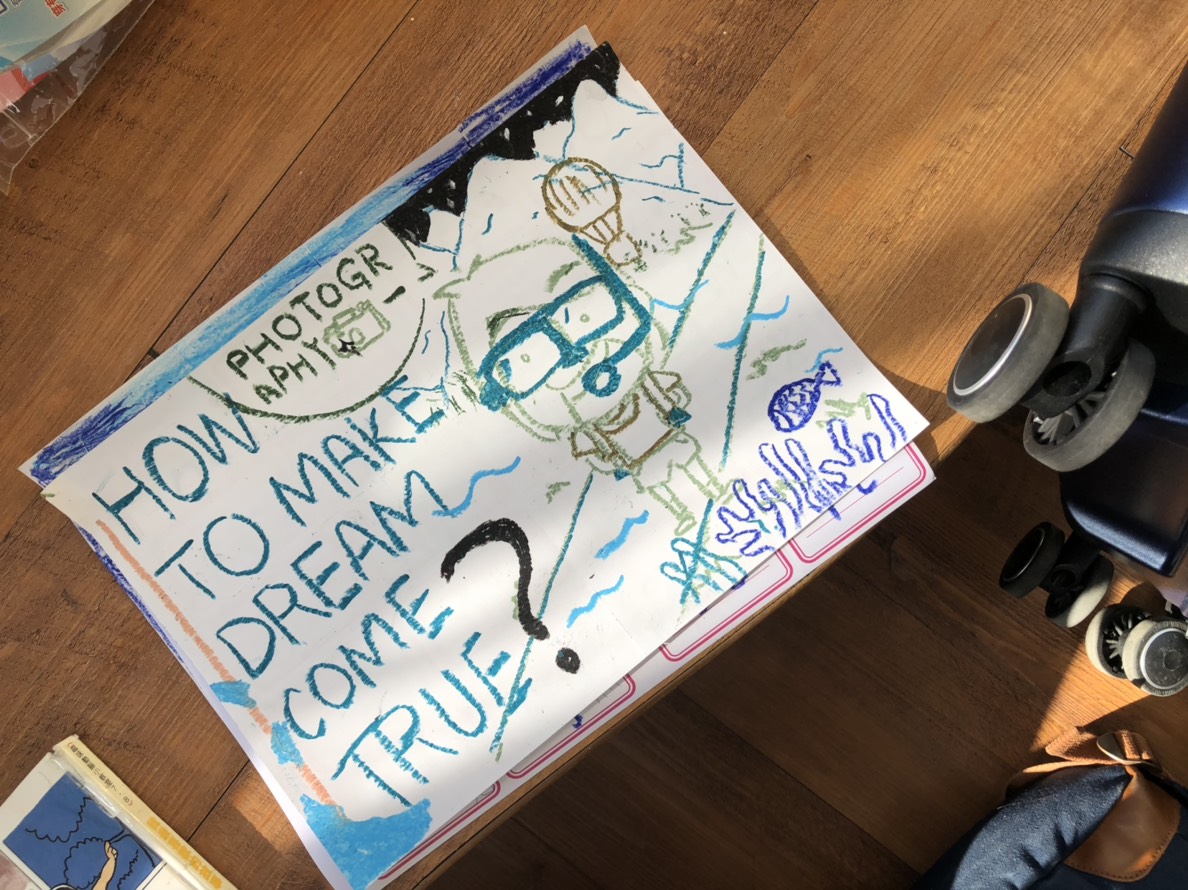 PHOTOGR
APHY
HOW
TO MAKE
DREAM
COME
TRUE?